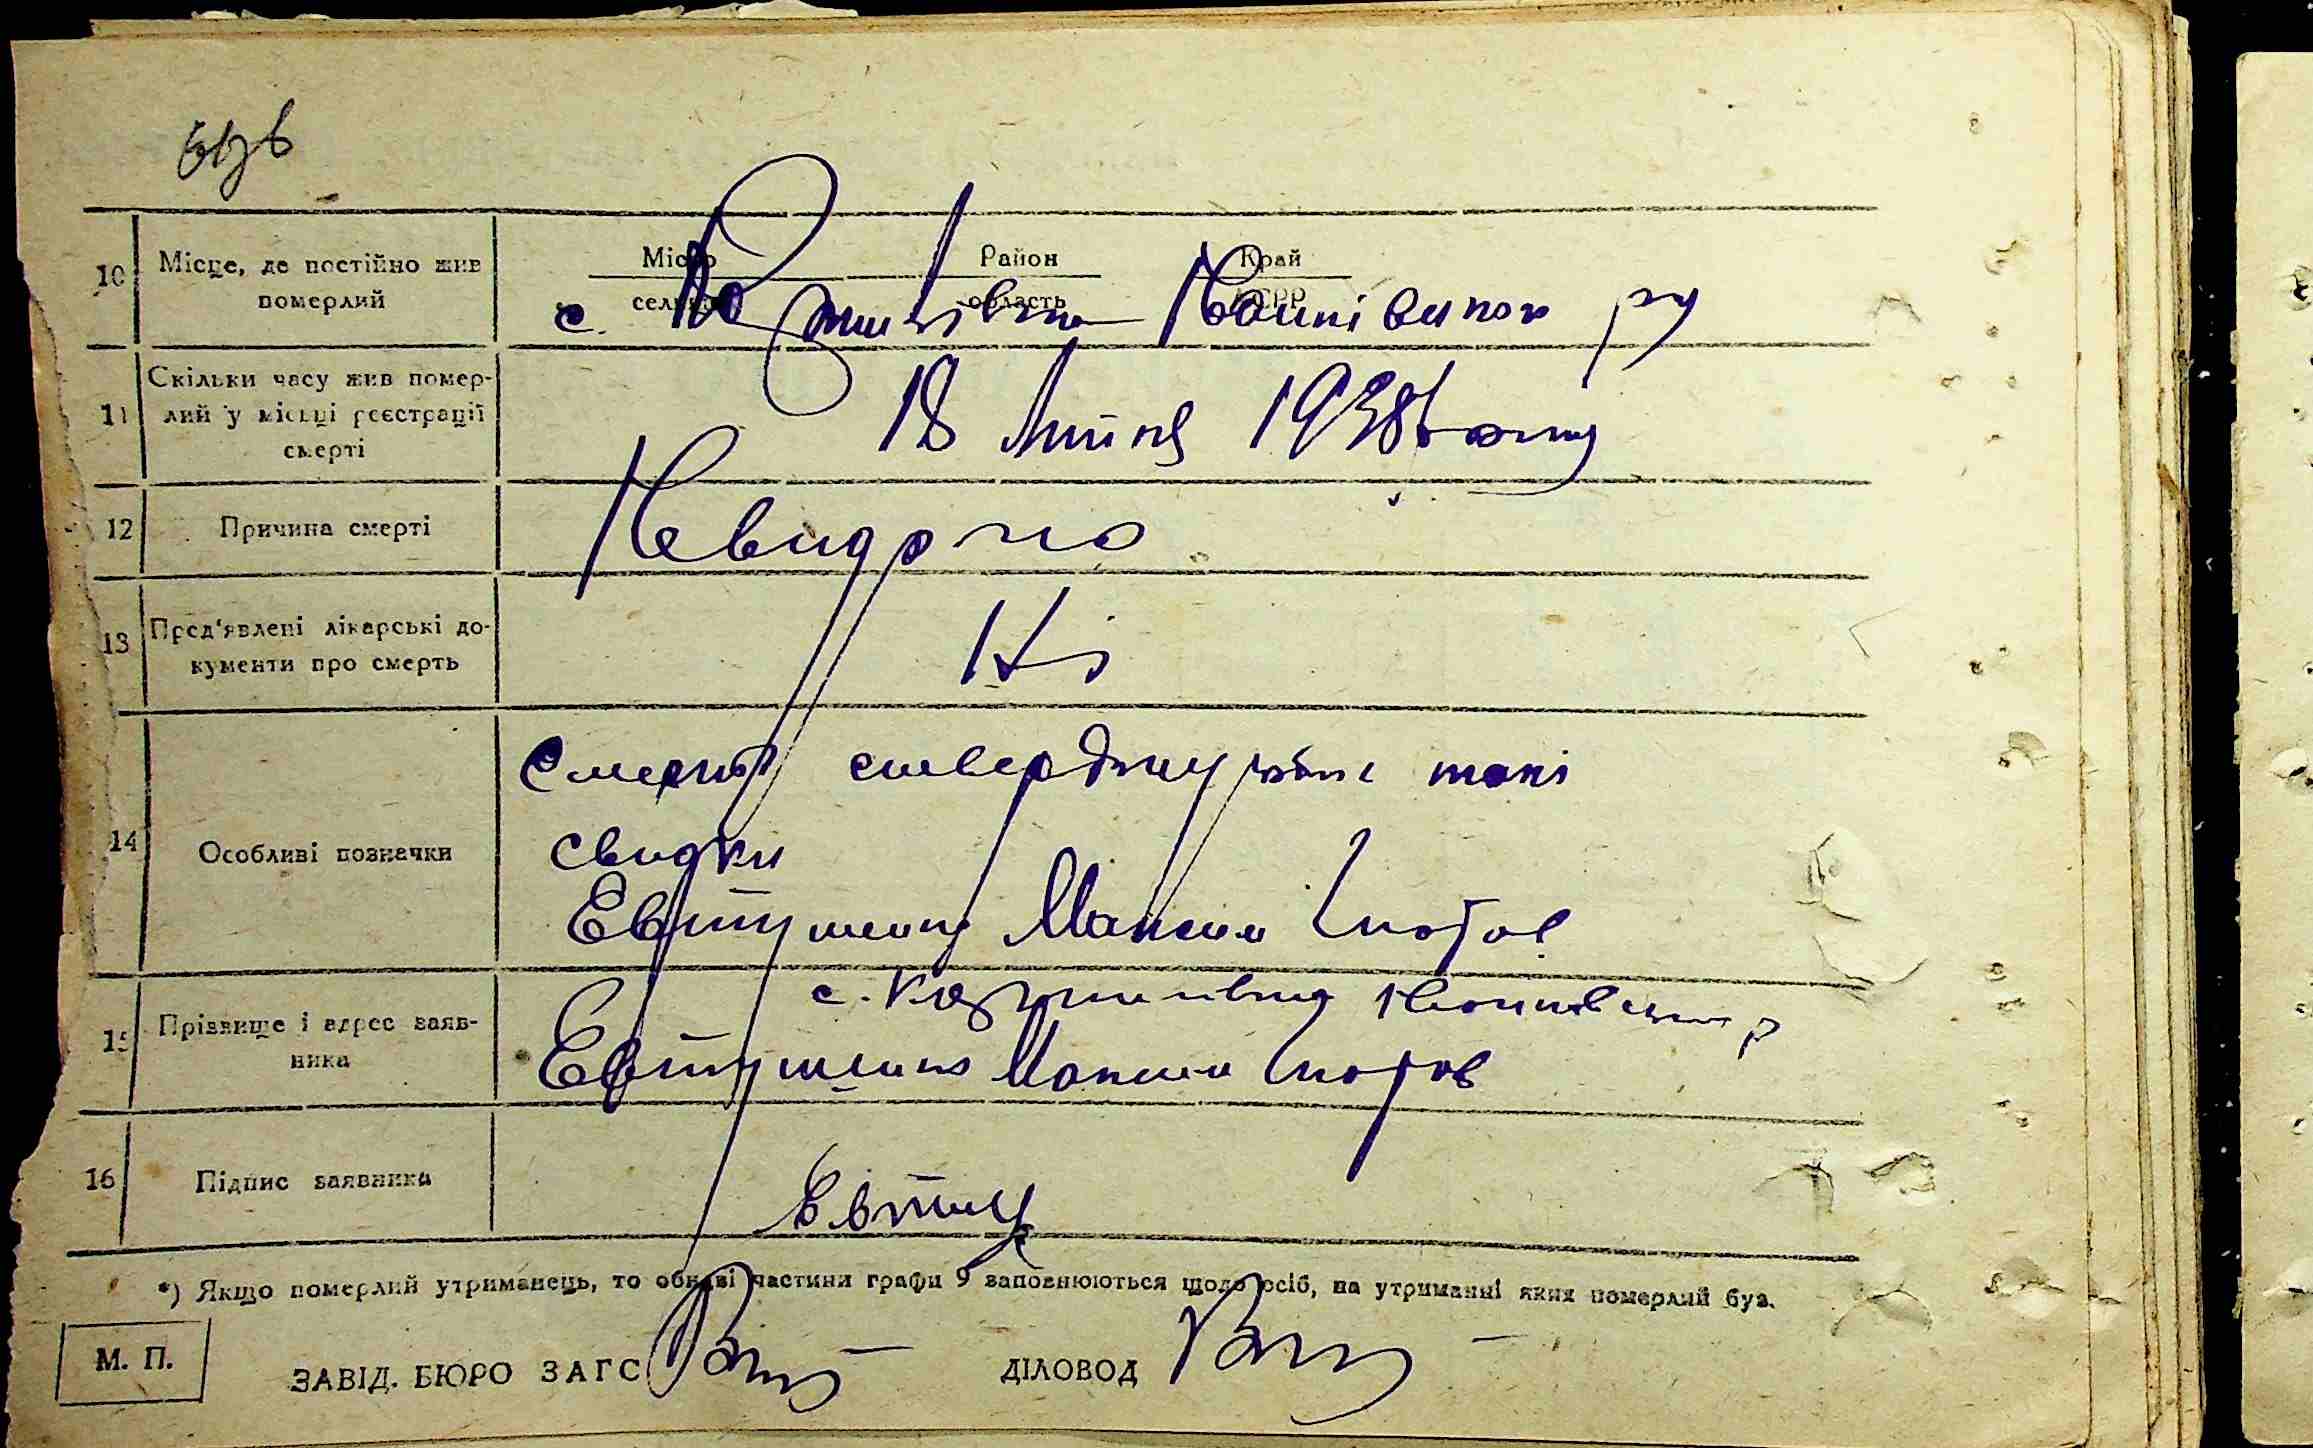 10 Місце, де постійно жив
померлий
Місто Район Край
селище область АСРР
с.
11 Скільки часу жив помер-
лий у місці реєстрації
смерті
18 липня 1938 року
12 Причина смерті
Невидомо
13 Пред'явлені лікарські до-
кументи про смерть
Ні
14 Особливі позначки
Смерть стверджують такі
свидки
Евтушенко Максим
15 Прізвище і адрес заяв-
ника
с.
Евтушенко Максим
16 Підпис заявника
Евтуш
*) Якщо померлий утриманець, то обидві частини графи 9 заповнюються щодо осіб, на утриманні яких померлий був.
М. П.
ЗАВІД. БЮРО ЗАГС
ДІЛОВОД